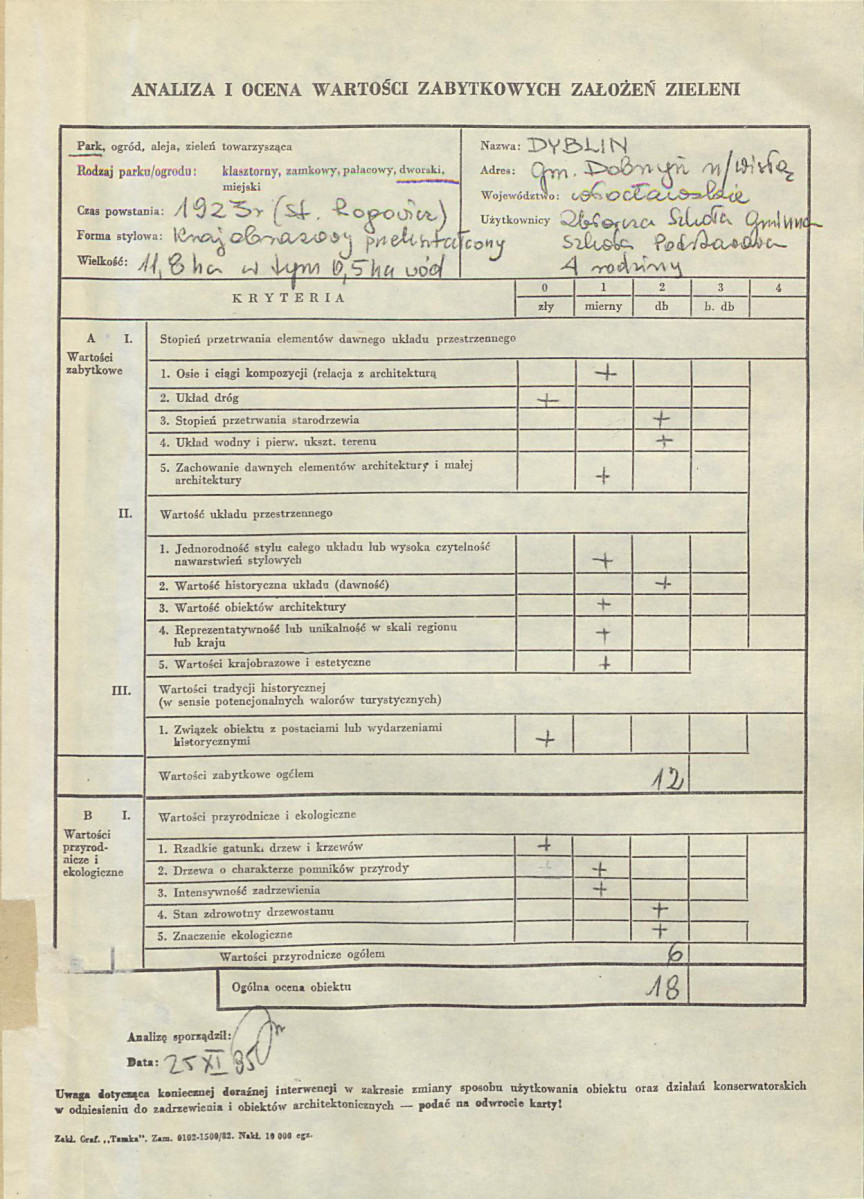 ANALIZA I OCENA WARTOŚCI ZABYTKOWYCH ZAŁOŻEŃ ZIELENI
Park, ogród, aleja, zieleń towarzysząca
Rodzaj parku/ogrodu: klasztorny, zamkowy, pałacowy, dworski,
miejski
Czas powstania: 1923r (St. Rogowicz)
Forma stylowa: Krajobrazowy przekształcony
Wielkość: 11,8 ha w tym 0,5 ha wód
Nazwa: DYBLIN
Adres: gm. Dobrzyń n/Wisłą
Województwo: włocławskie
Użytkownicy Zbiorcza Szkoła Gminna
Szkoła Podstawowa
4 rodziny
KRYTERIA
0 1 2 3 4
zły mierny db b. db
A I. Stopień przetrwania elementów dawnego układu przestrzennego
Wartości
zabytkowe
1. Osie i ciągi kompozycji (relacja z architekturą +
2. Układ dróg +
3. Stopień przetrwania starodrzewia +
4. Układ wodny i pierw. ukszt. terenu +
5. Zachowanie dawnych elementów architektury i małej
architektury +
II. Wartość układu przestrzennego
1. Jednorodność stylu całego układu lub wysoka czytelność
nawarstwień stylowych +
2. Wartość historyczna układu (dawność) +
3. Wartość obiektów architektury +
4. Reprezentatywność lub unikalność w skali regionu
lub kraju +
5. Wartości krajobrazowe i estetyczne +
III. Wartości tradycji historycznej
(w sensie potencjonalnych walorów turystycznych)
1. Związek obiektu z postaciami lub wydarzeniami
historycznymi +
Wartości zabytkowe ogółem 12
B I. Wartości przyrodnicze i ekologiczne
Wartości
przyrod-
nicze i
ekologiczne
1. Rzadkie gatunki drzew i krzewów +
2. Drzewa o charakterze pomników przyrody +
3. Intensywność zadrzewienia +
4. Stan zdrowotny drzewostanu +
5. Znaczenie ekologiczne +
Wartości przyrodnicze ogółem 6
Ogólna ocena obiektu 18
Analizę sporządził:
Data: 25 XI 85
Uwaga dotycząca koniecznej doraźnej interwencji w zakresie zmiany sposobu użytkowania obiektu oraz działań konserwatorskich
w odniesieniu do zadrzewienia i obiektów architektonicznych — podać na odwrocie karty!
Zakł. Graf. „Tamka". Zam. 0102-1500/82. Nakł. 10 000 egz.